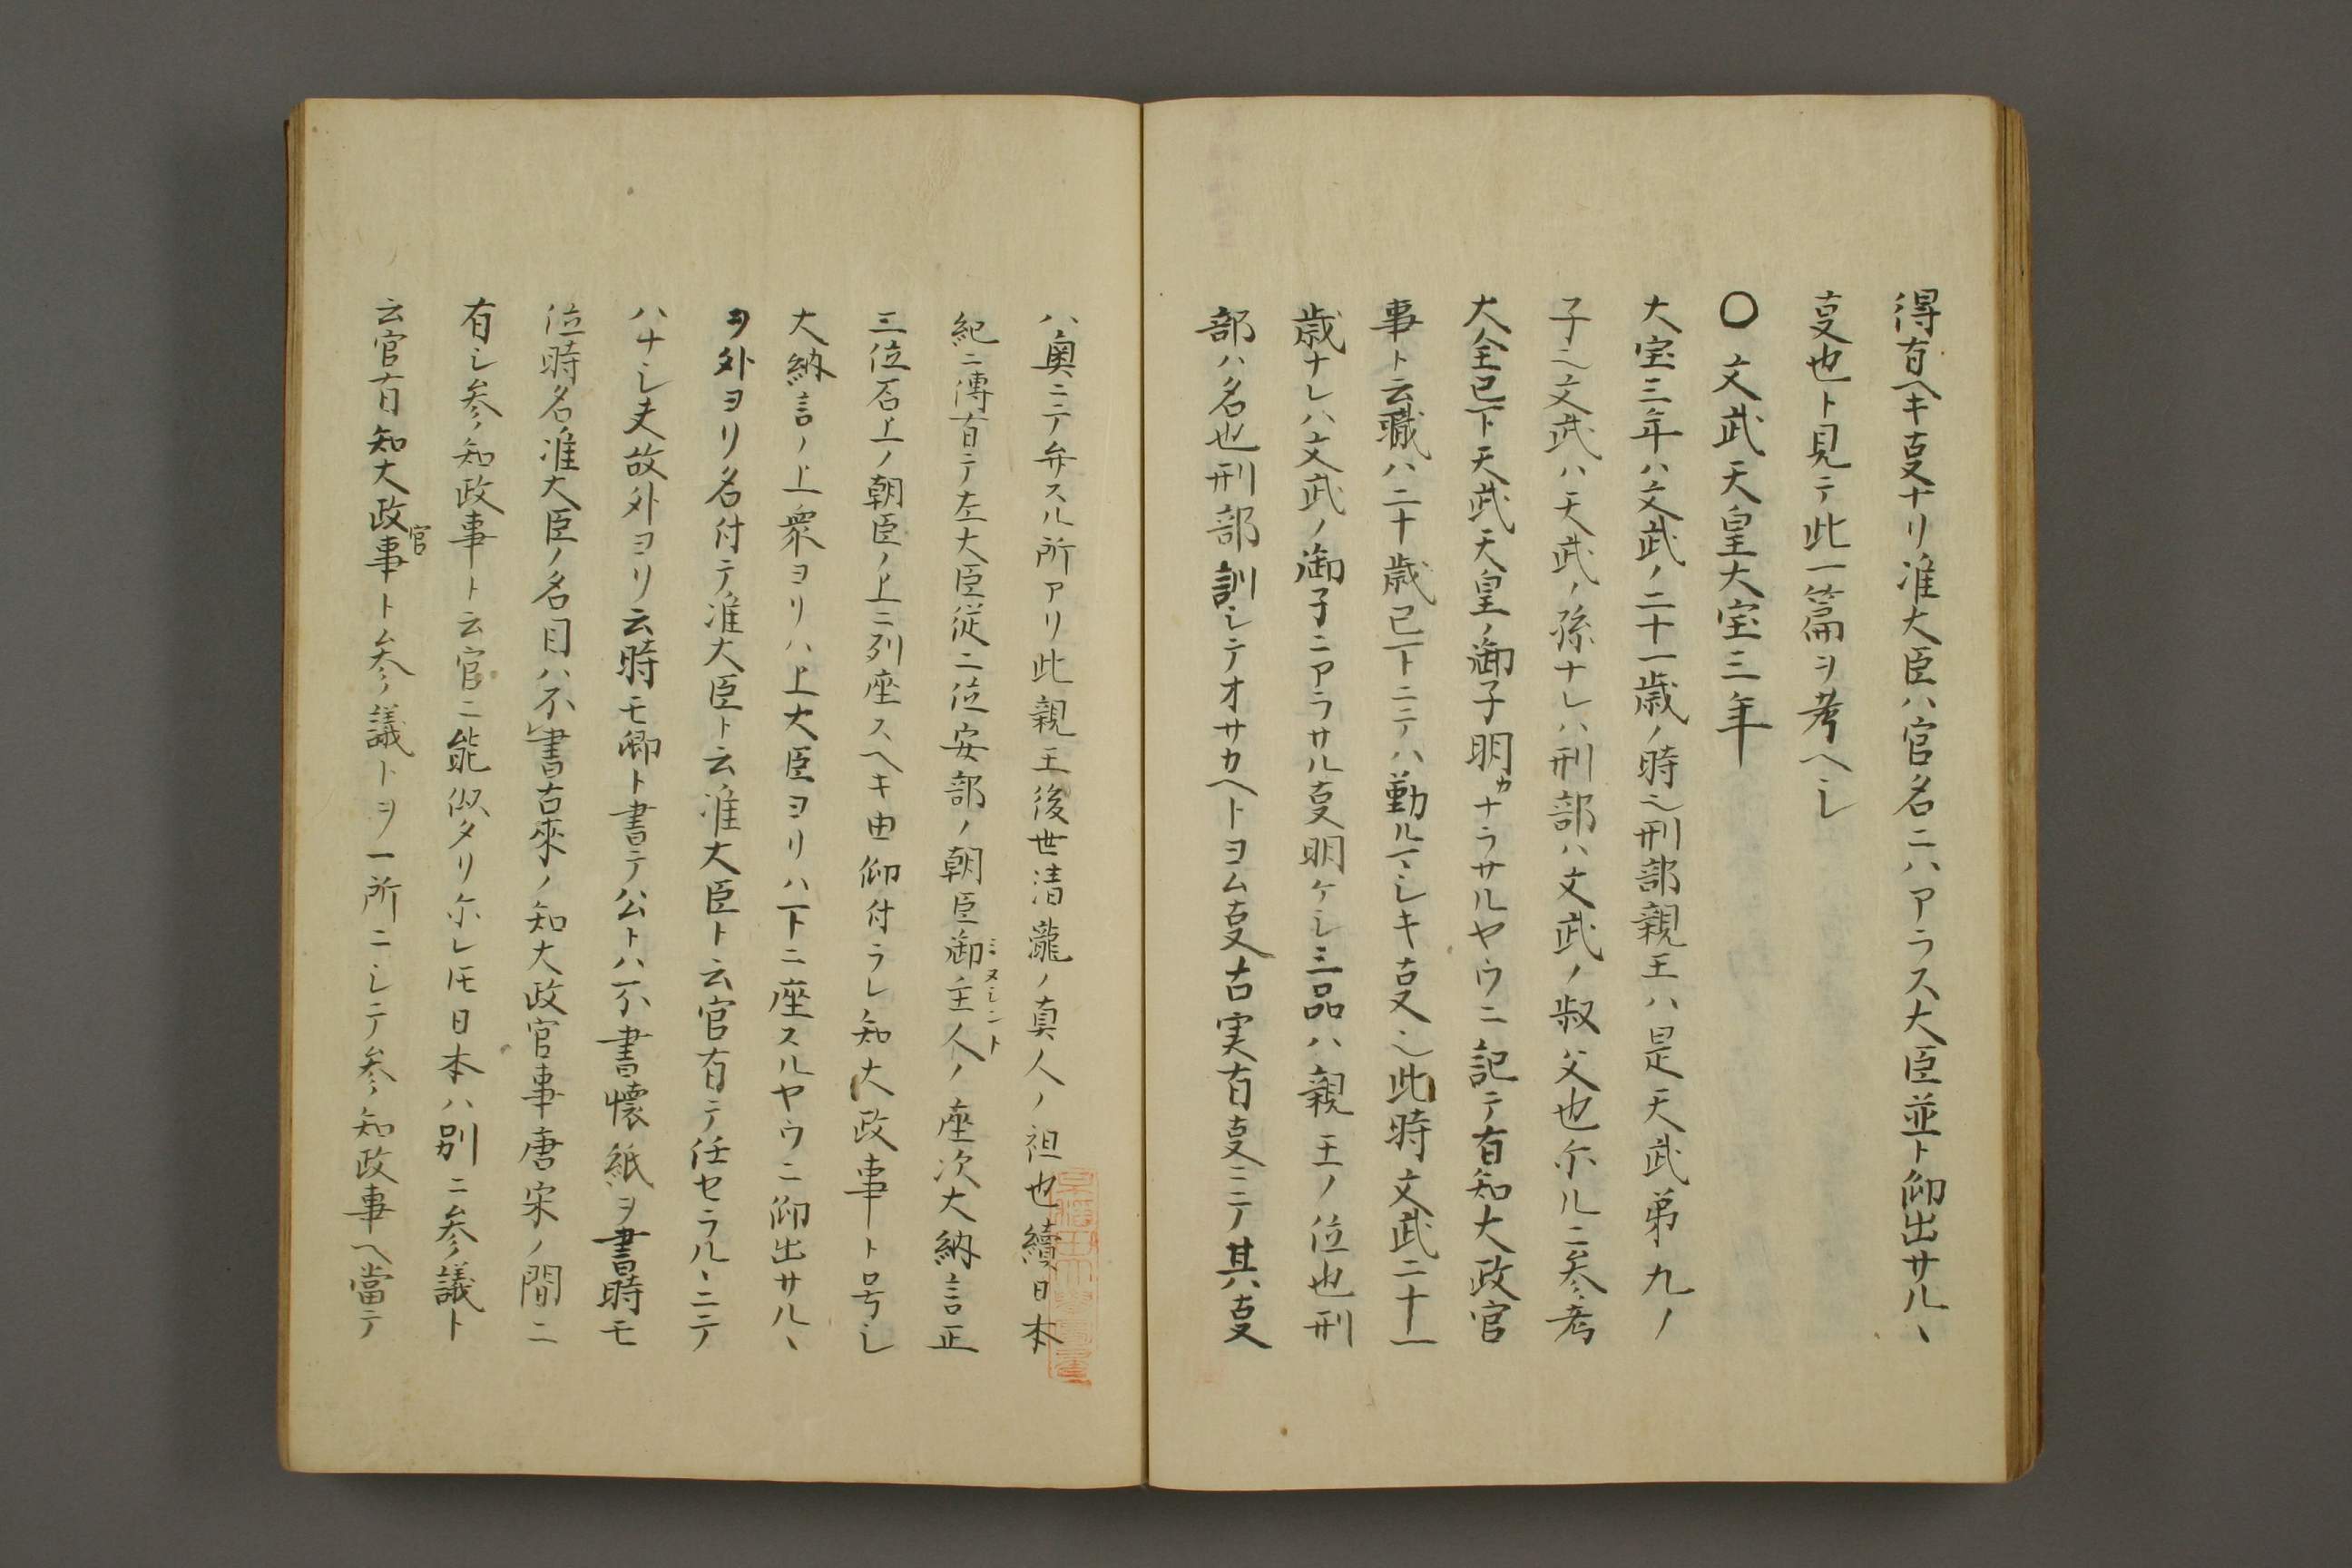 得有ヘキ叓ナリ准大臣ハ官名ニハアラス大臣並ト仰出サル丶
叓也ト見テ此一篇ヲ考ヘシ
〇文武天皇大宝三年
大宝三年ハ文武ノ二十一歳ノ時也刑部親王ハ是天武弟九ノ
子也文武ハ天武ノ孫ナレハ刑部ハ文武ノ叔父也尓ルニ参考
大全已下天武天皇ノ御子明カナラサルヤウニ記テ有知大政官
事ト云職ハ二十歳已下ニテハ勤ルマシキ叓也此時文武二十一
歳ナレハ文武ノ御子ニアラサル叓明ケシ三品ハ親王ノ位也刑
部ハ名也刑部訓シテオサカヘトヨム叓古実有叓ニテ其叓
ハ奥ニテ弁スル所アリ此親王後世清瀧ノ真人ノ祖也續日本
紀ニ傳有テ左大臣従二位安部ノ朝臣御主人ミヌシントノ座次大納言正
三位石上ノ朝臣ノ上ニ列座スヘキ由仰付ラレ知大政事ト号シ
大納言ノ上衆ヨリハ上大臣ヨリハ下ニ座スルヤウニ仰出サル丶
ヲ外ヨリ名付テ准大臣ト云准大臣ト云官有テ任セラル丶ニテ
ハナシ夫故外ヨリ云時モ卿ト書テ公トハ不書懐紙ヲ書時モ
位時名准大臣ノ名目ハ不書古來ノ知大政官事唐宋ノ間ニ
有シ参知政事ト云官ニ能似タリ尓レ𪜈日本ハ別ニ参議ト
云官有知大政官事ト参議トヲ一所ニシテ参知政事ヘ當テ